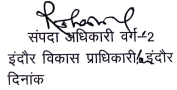 संपदा अधिकारी वर्ग-2
इंदौर विकास प्राधिकारी इंदौर
दिनांक